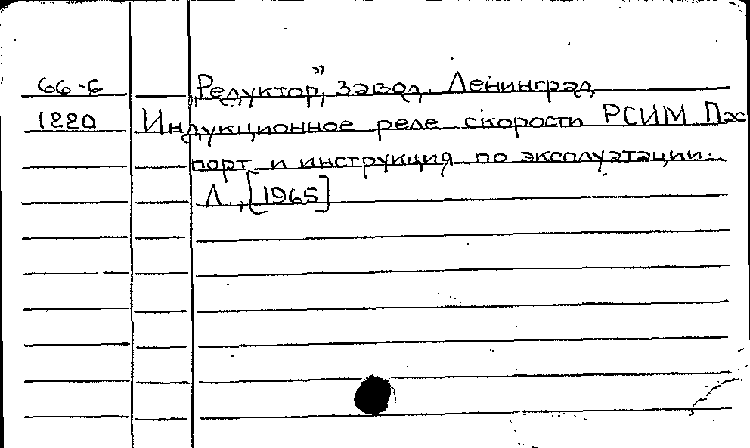 66-6 Редуктор", завод. Ленинград
1220 Индукционное реле скорости РСИМ. Пас
порт и инструкция по эксплуатации.
Л., [1965]